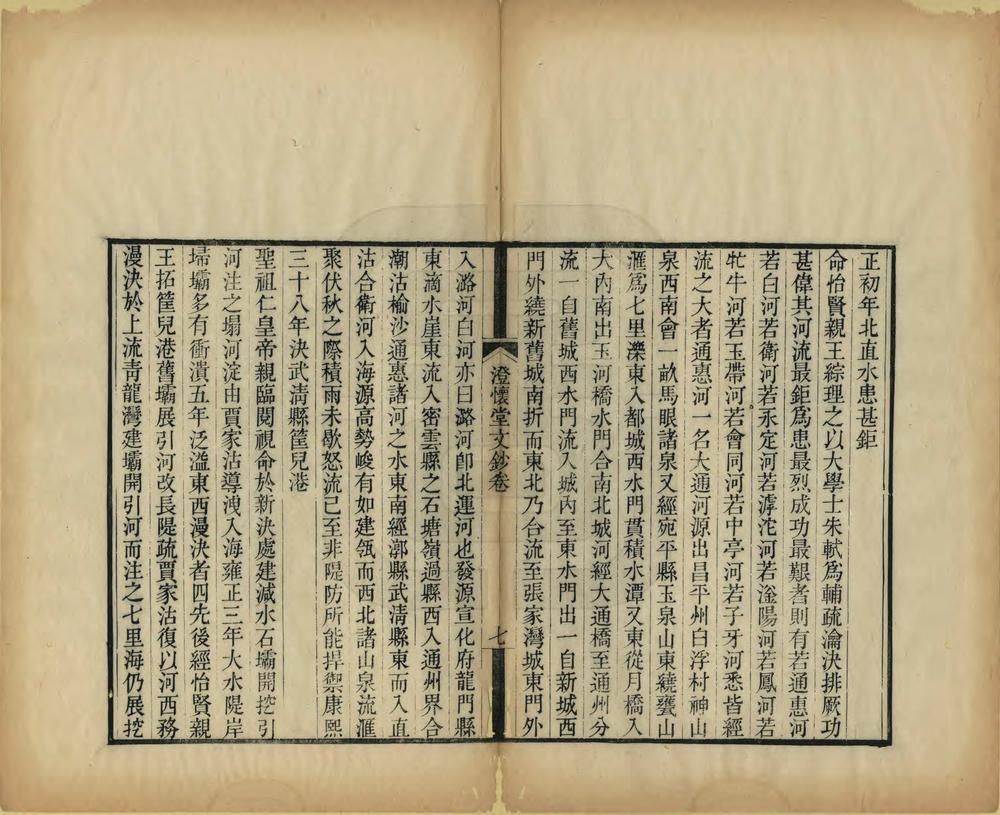 正初年北直水患甚鉅
命怡賢親王綜理之以大學士朱軾爲輔疏瀹決排厥功
甚偉其河流最鉅爲患最烈成功最艱者則有若通惠河
若白河若衛河若永定河若滹沱河若滏陽河若鳳河若
牤牛河若玉帶河若會同河若中亭河若子牙河悉皆經
流之大者通惠河一名大通河源出昌平州白浮村神山
泉西南會一畝馬眼諸泉又經宛平縣玉泉山東繞甕山
滙爲七里濼東入都城西水門貫積水潭又東從月橋入
大內南出玉河橋水門合南北城河經大通橋至通州分
流一自舊城西水門流入城內至東水門出一自新城西
門外繞新舊城南折而東北乃合流至張家灣城東門外
澄懷堂文鈔卷 七
入潞河白河亦曰潞河卽北運河也發源宣化府龍門縣
東滴水崖東流入密雲縣之石塘嶺過縣西入通州界合
潮沽榆沙通惠諸河之水東南經漷縣武清縣東而入直
沽合衛河入海源高勢峻有如建瓴而西北諸山泉流滙
聚伏秋之際積雨未歇怒流已至非隄防所能捍禦康熙
三十八年決武清縣筐兒港
聖祖仁皇帝親臨閱視命於新決處建減水石壩開挖引
河注之塌河淀由賈家沽導洩入海雍正三年大水隄岸
埽壩多有衝潰五年泛溢東西漫決者四先後經怡賢親
王拓筐兒港舊壩展引河改長隄疏賈家沽復以河西務
漫決於上流靑龍灣建壩開引河而注之七里海仍展挖